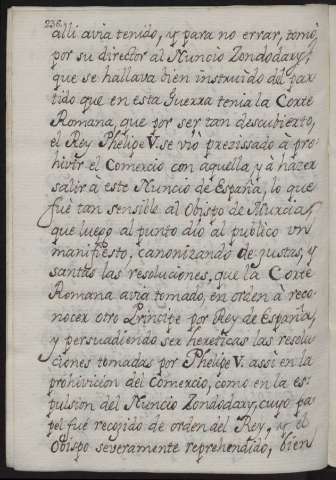 236.
alli avia tenido, y para no errar, tomò
por su director al Nuncio Zondodary,
que se hallava bien instruìdo del par
tido que en esta Guerra tenia la Corte
Romana, que por ser tan descubierto,
el Rey Phelipe V. se viò prezissado à pro
hivir el Comercio con aquella, y à hazer
salir à este Nuncio de España, lo que
fuè tan sensible al Obispo de Murcia,
que luego al punto diò al publico un
manifiesto, canonizando de justas, y
santas las resoluciones, que la Corte
Romana avia tomado, en orden à reco
nocer otro Principe por Rey de España,
y persuadiendo ser hereticas las resolu
ciones tomadas por Phelipe V. assi en la
prohivicion del Comercio, como en la es-
pulsion del Nuncio Zondodary, cuyo pa
pel fue recogido de orden del Rey, y el
Obispo severamente reprehendido, bien